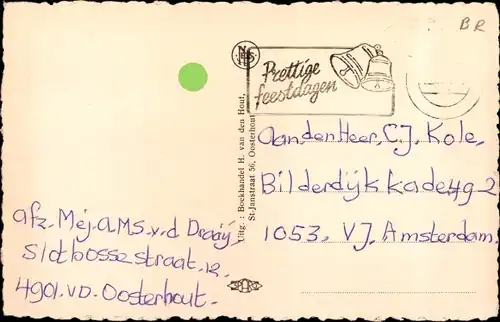 BR
Prettige
feestdagen
Uitg.: Boekhandel H. van den Hout,
St-Janstraat 56, Oosterhout
Aan den Heer, C.J. Kole.
Bilderdijkkade 49-2
1053. VJ. Amsterdam
afz. Mej. A.M.S. v. d Draaij.
Slotbossestraat. 12.
4901. VD. Oosterhout.